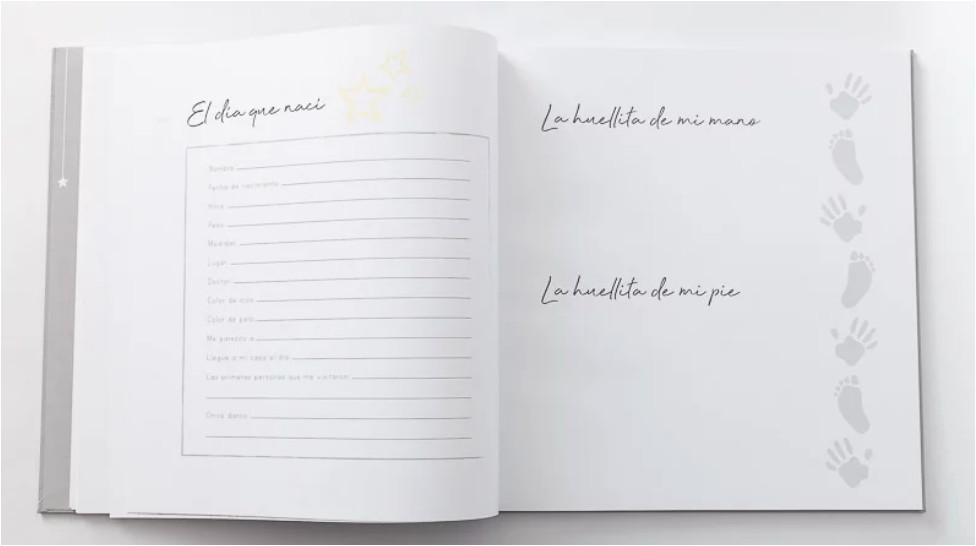 El día que nací
Nombre
Fecha de nacimiento
Hora
Peso
Medidas
Lugar
Doctor
Color de ojos
Color de pelo
Me parezco a
Llegue a mi casa el día
Las primeras personas que me visitaron
Otros datos
La huellita de mi mano
La huellita de mi pie